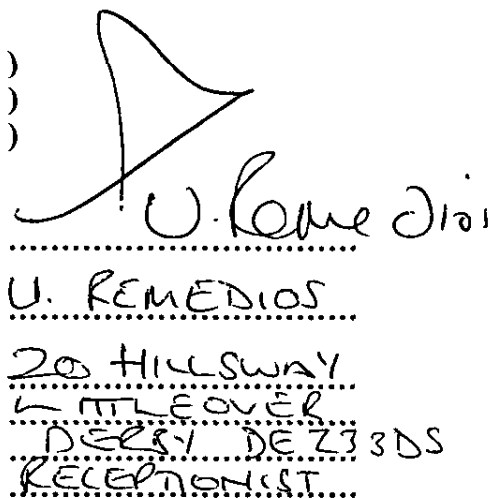 )
)
)
U. Remedios
U. REMEDIOS
20 HILLSWAY
LITTLEOVER
DERBY DE23 3DS
RECEPTIONIST